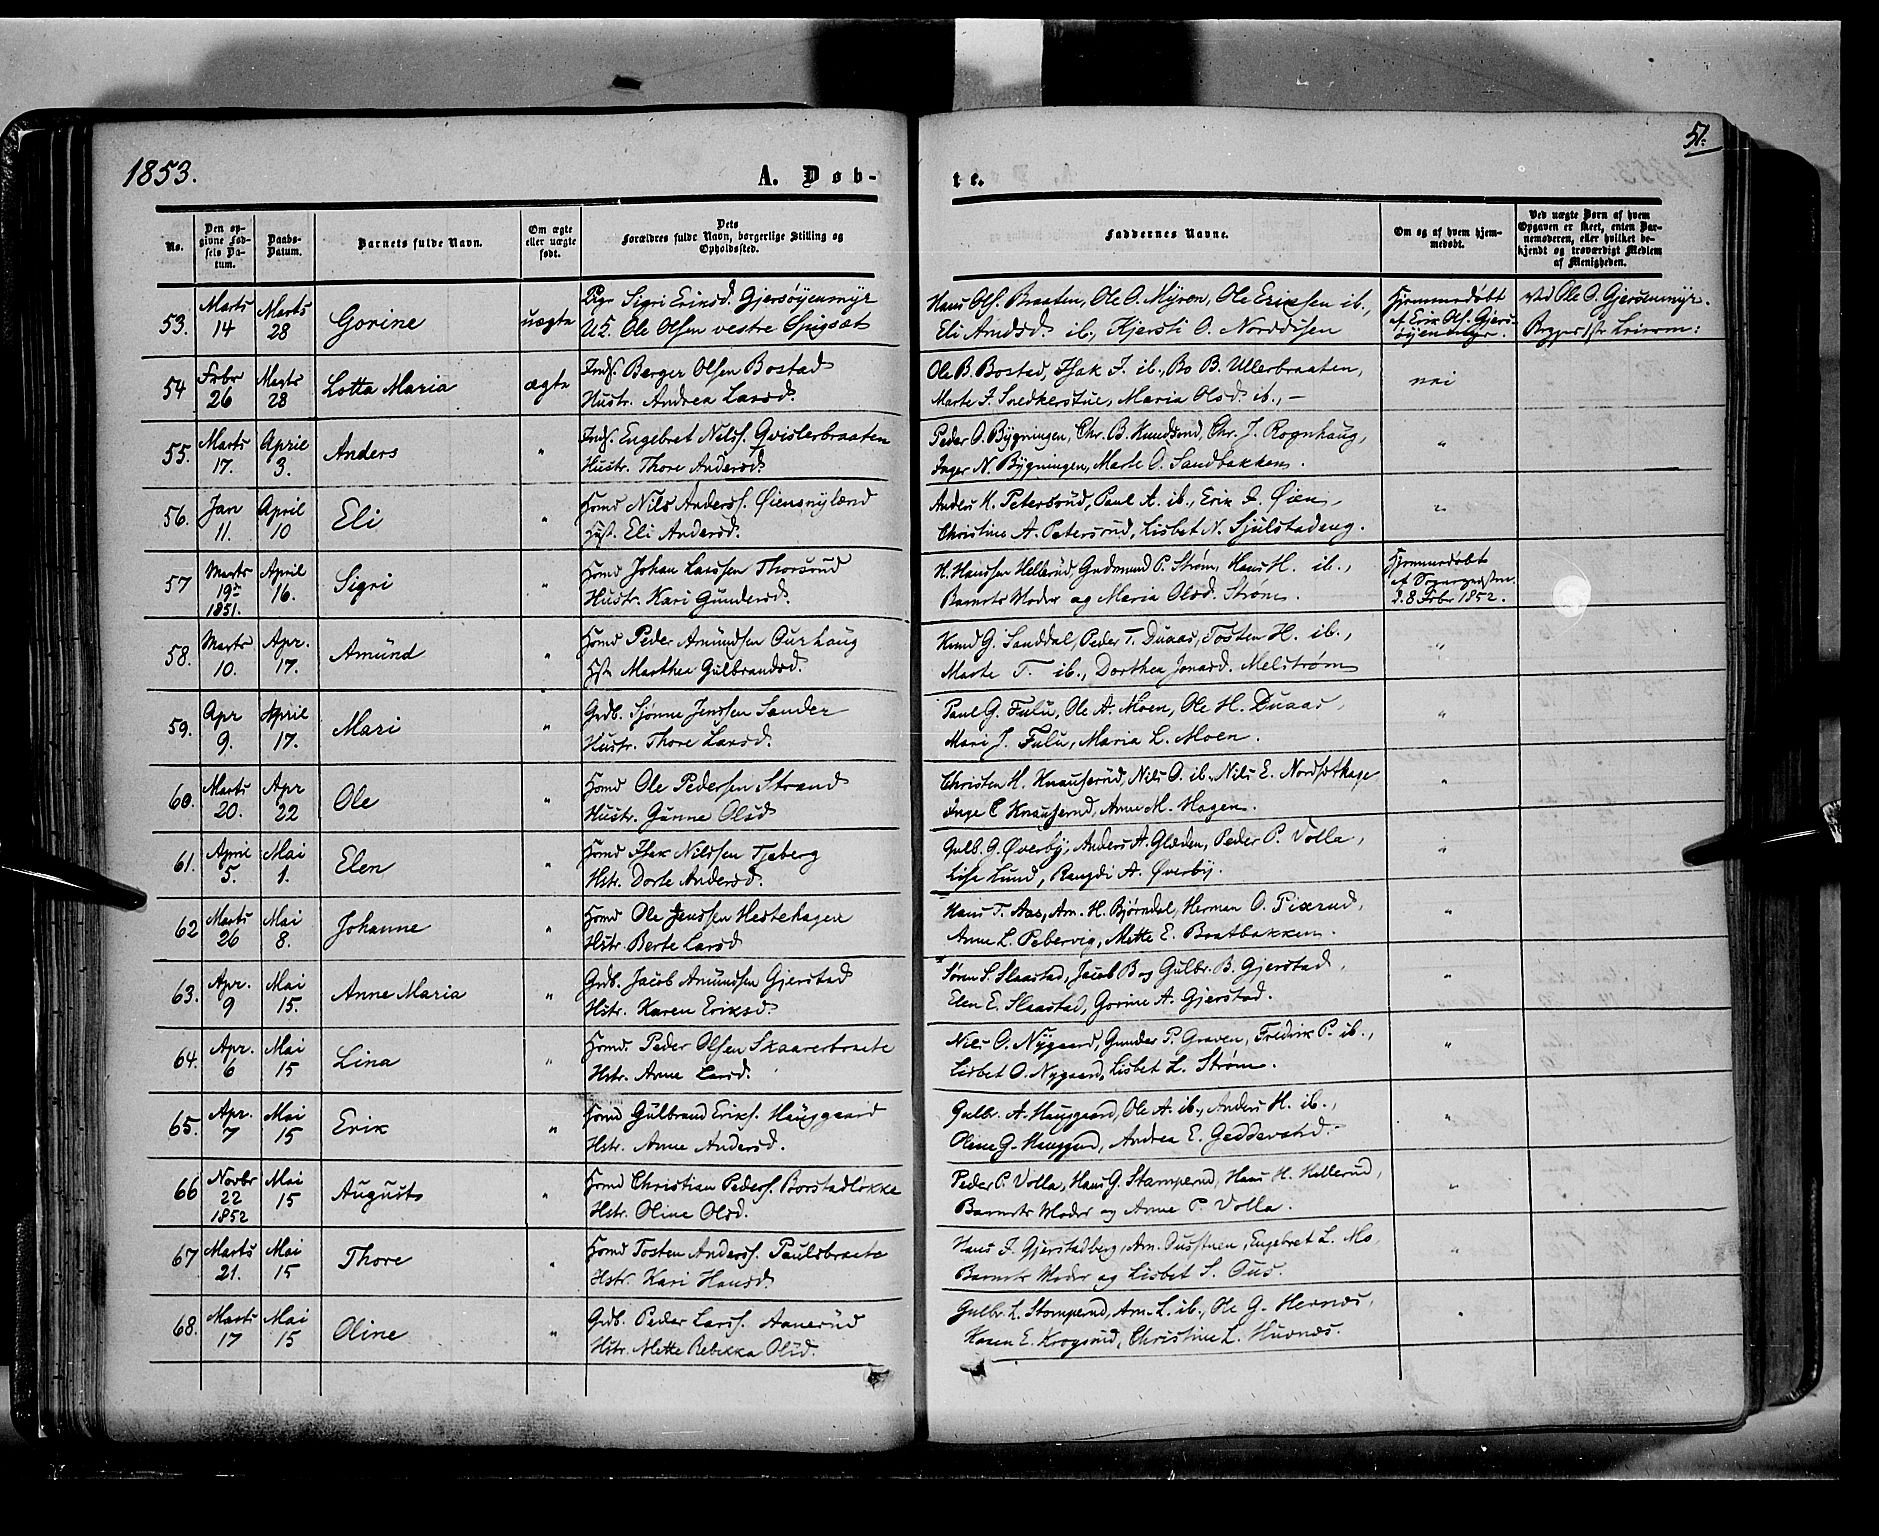 1853.
A. Døb-
te.
51.
No.
Den opgivne Fødsels Datum.
Daabs-Datum.
Barnets fulde Navn.
Om ægte eller uægte født.
Dets Forældres fulde Navn, borgerlige Stilling og Opholdssted.
Faddernes Navne.
Om og af hvem hjemmedøbt.
Ved uægte Børn af hvem Opgaven er skeet, enten Barnemoderen, eller hvilket bekjendt og troværdigt Medlem af Menigheden.
53. Marts 14 Marts 28 Gorine uægte
Pige Sigri Eriksd. Gjersøyenmyr
U.K. Ole Olsen vestre Spigset
Hans Ols. Braaten, Ole O. Myren, Ole Eriksen ib.,
Eli Andsd. ib., Kjersti O. Nordisen
Hjemmedøbt
af Erik Ols. Gjers-
øyenmyr.
ved Ole O. Gjersøenmyr.
54 Febr 26 Marts 28 Lotta Maria ægte
Inds. Berger Olsen Bostad
Hustr. Andrea Larsd.
Ole B. Bostad, Isak J. ib., Bo B. Ullerbraaten,
Marte J. Snedkerstue, Maria Olsd. ib., –
nei
55. Marts 17. April 3. Anders "
Inds. Engebret Nilss. Qvislerbraaten
Hustr. Thore Andersd.
Peder O. Bygningen, Chr. B. Knudsend, Chr. J. Rognhaug,
Inger N. Bygningen, Marte O. Sandbakken.
"
56. Jan 11. April 10 Eli "
Hsmd Nils Anderss. Øiensnyland
Hst. Eli Andersd.
Anders K. Petersrud, Paul A. ib., Erik J. Øien,
Christine A. Petersrud, Lisbet N. Sjulstadeng.
"
57 Marts 19de 1851. April 16. Sigri "
Hsmd Johan Larssen Thorsrud
Hustr. Kari Gundersd.
H. Hanssen Hellerud, Gudmund P. Strøm, Hans H. ib.,
Barnets Moder og Maria Olsd. Strøm.
Hjemmedøbt
af Sognepresten
d. 8 Febr 1852.
58. Marts 10. Apr. 17. Amund "
Hsmd Peder Amundsen Aurhaug
Hst. Marthea Gulbrandsd.
Knud G. Sanddal, Peder T. Duaas, Tosten H. ib.,
Marte T. ib., Dorthea Jonasd. Melstrøm
"
59. Apr 9. April 17. Mari "
Grdb. Sjønne Jenssen Sander
Hustr. Thore Larsd.
Paul G. Fulu, Ole A. Moen, Ole H. Duaas,
Mari J. Fulu, Maria L. Moen.
"
60. Marts 20. Apr 22 Ole "
Hsmd Ole Pedersen Strand
Hustr. Gunne Olsd
Christen H. Knauserud, Nils O. ib., Nils E. Nordsethage
Inge C Knauserud, Anne M. Hagen.
"
61. April 5. Mai 1. Elen "
Hsmd Isak Nilssen Tjeberg
Hstr. Dorte Andersd.
Gulb. G. Øverby, Anders A. Glæden, Peder P. Volla,
Lise Lund, Rangdi A. Øverby.
"
62 Marts 26 Mai 8. Johanne "
Hsmd Ole Jenssen Hestehagen
Hstr Berte Larsd
Hans T. Aas, Am. H. Bjørndal, Herman O. Pixrud,
Anne L. Pebervig, Mette E. Bratbakken.
"
63. Apr. 9 Mai 15. Anne Maria "
Grdb. Jacob Amundsen Gjerstad
Hstr. Karen Eriksd.
Søren S. Slaastad, Jacob B og Gulbr. B. Gjerstad,
Elen E. Slaastad, Gorine A. Gjerstad.
"
64. Apr. 6 Mai 15 Lina "
Hsmd. Peder Olsen Skaarerbraate
Hstr. Anne Larsd.
Nils O. Nygaard, Gunder P. Graven, Fredrik P. ib.,
Lisbet O. Nygaard, Lisbet L. Strøm.
"
65. Apr. 7 Mai 15 Erik "
Hsmd Gulbrand Eriks. Hauggaard
Hstr. Anne Andersd.
Gulbr. A. Hauggaard, Ole A. ib., Anders H. ib.,
Olene G. Hauggard, Andrea E. Geddevatsd.
"
66 Novbr 22 1852 Mai 15 Augusta "
Hsmd Christian Peders. Borstadløkke
Hstr. Oline Olsd.
Peder P. Volla, Hans G. Stamperud, Hans H. Hellerud,
Barnets Moder og Anne P. Volla.
"
67 Marts 21. Mai 15 Thore "
Hsmd Tosten Anderss. Paulsbraate
Hstr. Kari Hansd.
Hans J. Gjerstadberg, Am. Ousstuen, Engebret L. Mo,
Barnets Moder og Lisbet S. Ous.
"
68. Marts 17 Mai 15 Oline "
Grdb. Peder Larss. Aanerud
Hstr. Mette Rebekka Olsd.
Gulbr. L. Stamperud, Am. L. ib., Ole G. Hernæs,
Karen E. Krogsrud, Christine L. Huvnæs.
"